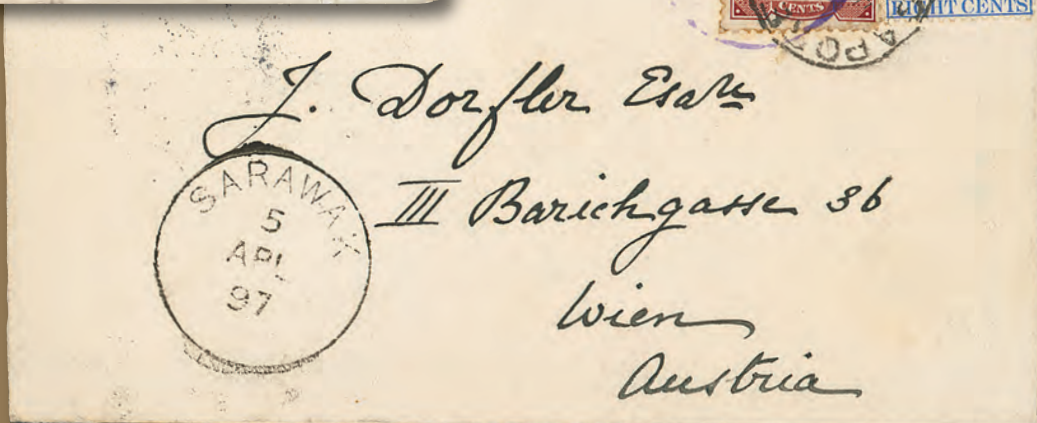 CENTS
EIGHT CENTS
J. Dorfler Esqre
III Barichgasse 36
Wien
Austria
SARAWAK
5
APL
97